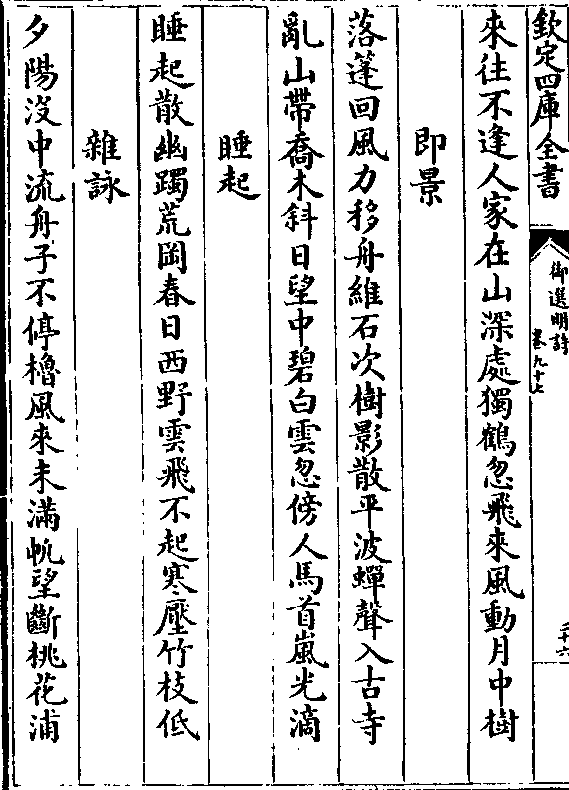 欽定四庫全書
御選明詩
卷九十七
二十六
來往不逢人家在山深處獨鶴忽飛來風動月中樹
即景
落篷回風力移舟維石次樹影散平波蟬聲入古寺
亂山帶喬木斜日望中碧白雲忽傍人馬首嵐光滴
睡起
睡起散幽躅荒岡春日西野雲飛不起寒壓竹枝低
雜詠
夕陽没中流舟子不停櫓風來未滿帆望斷桃花浦